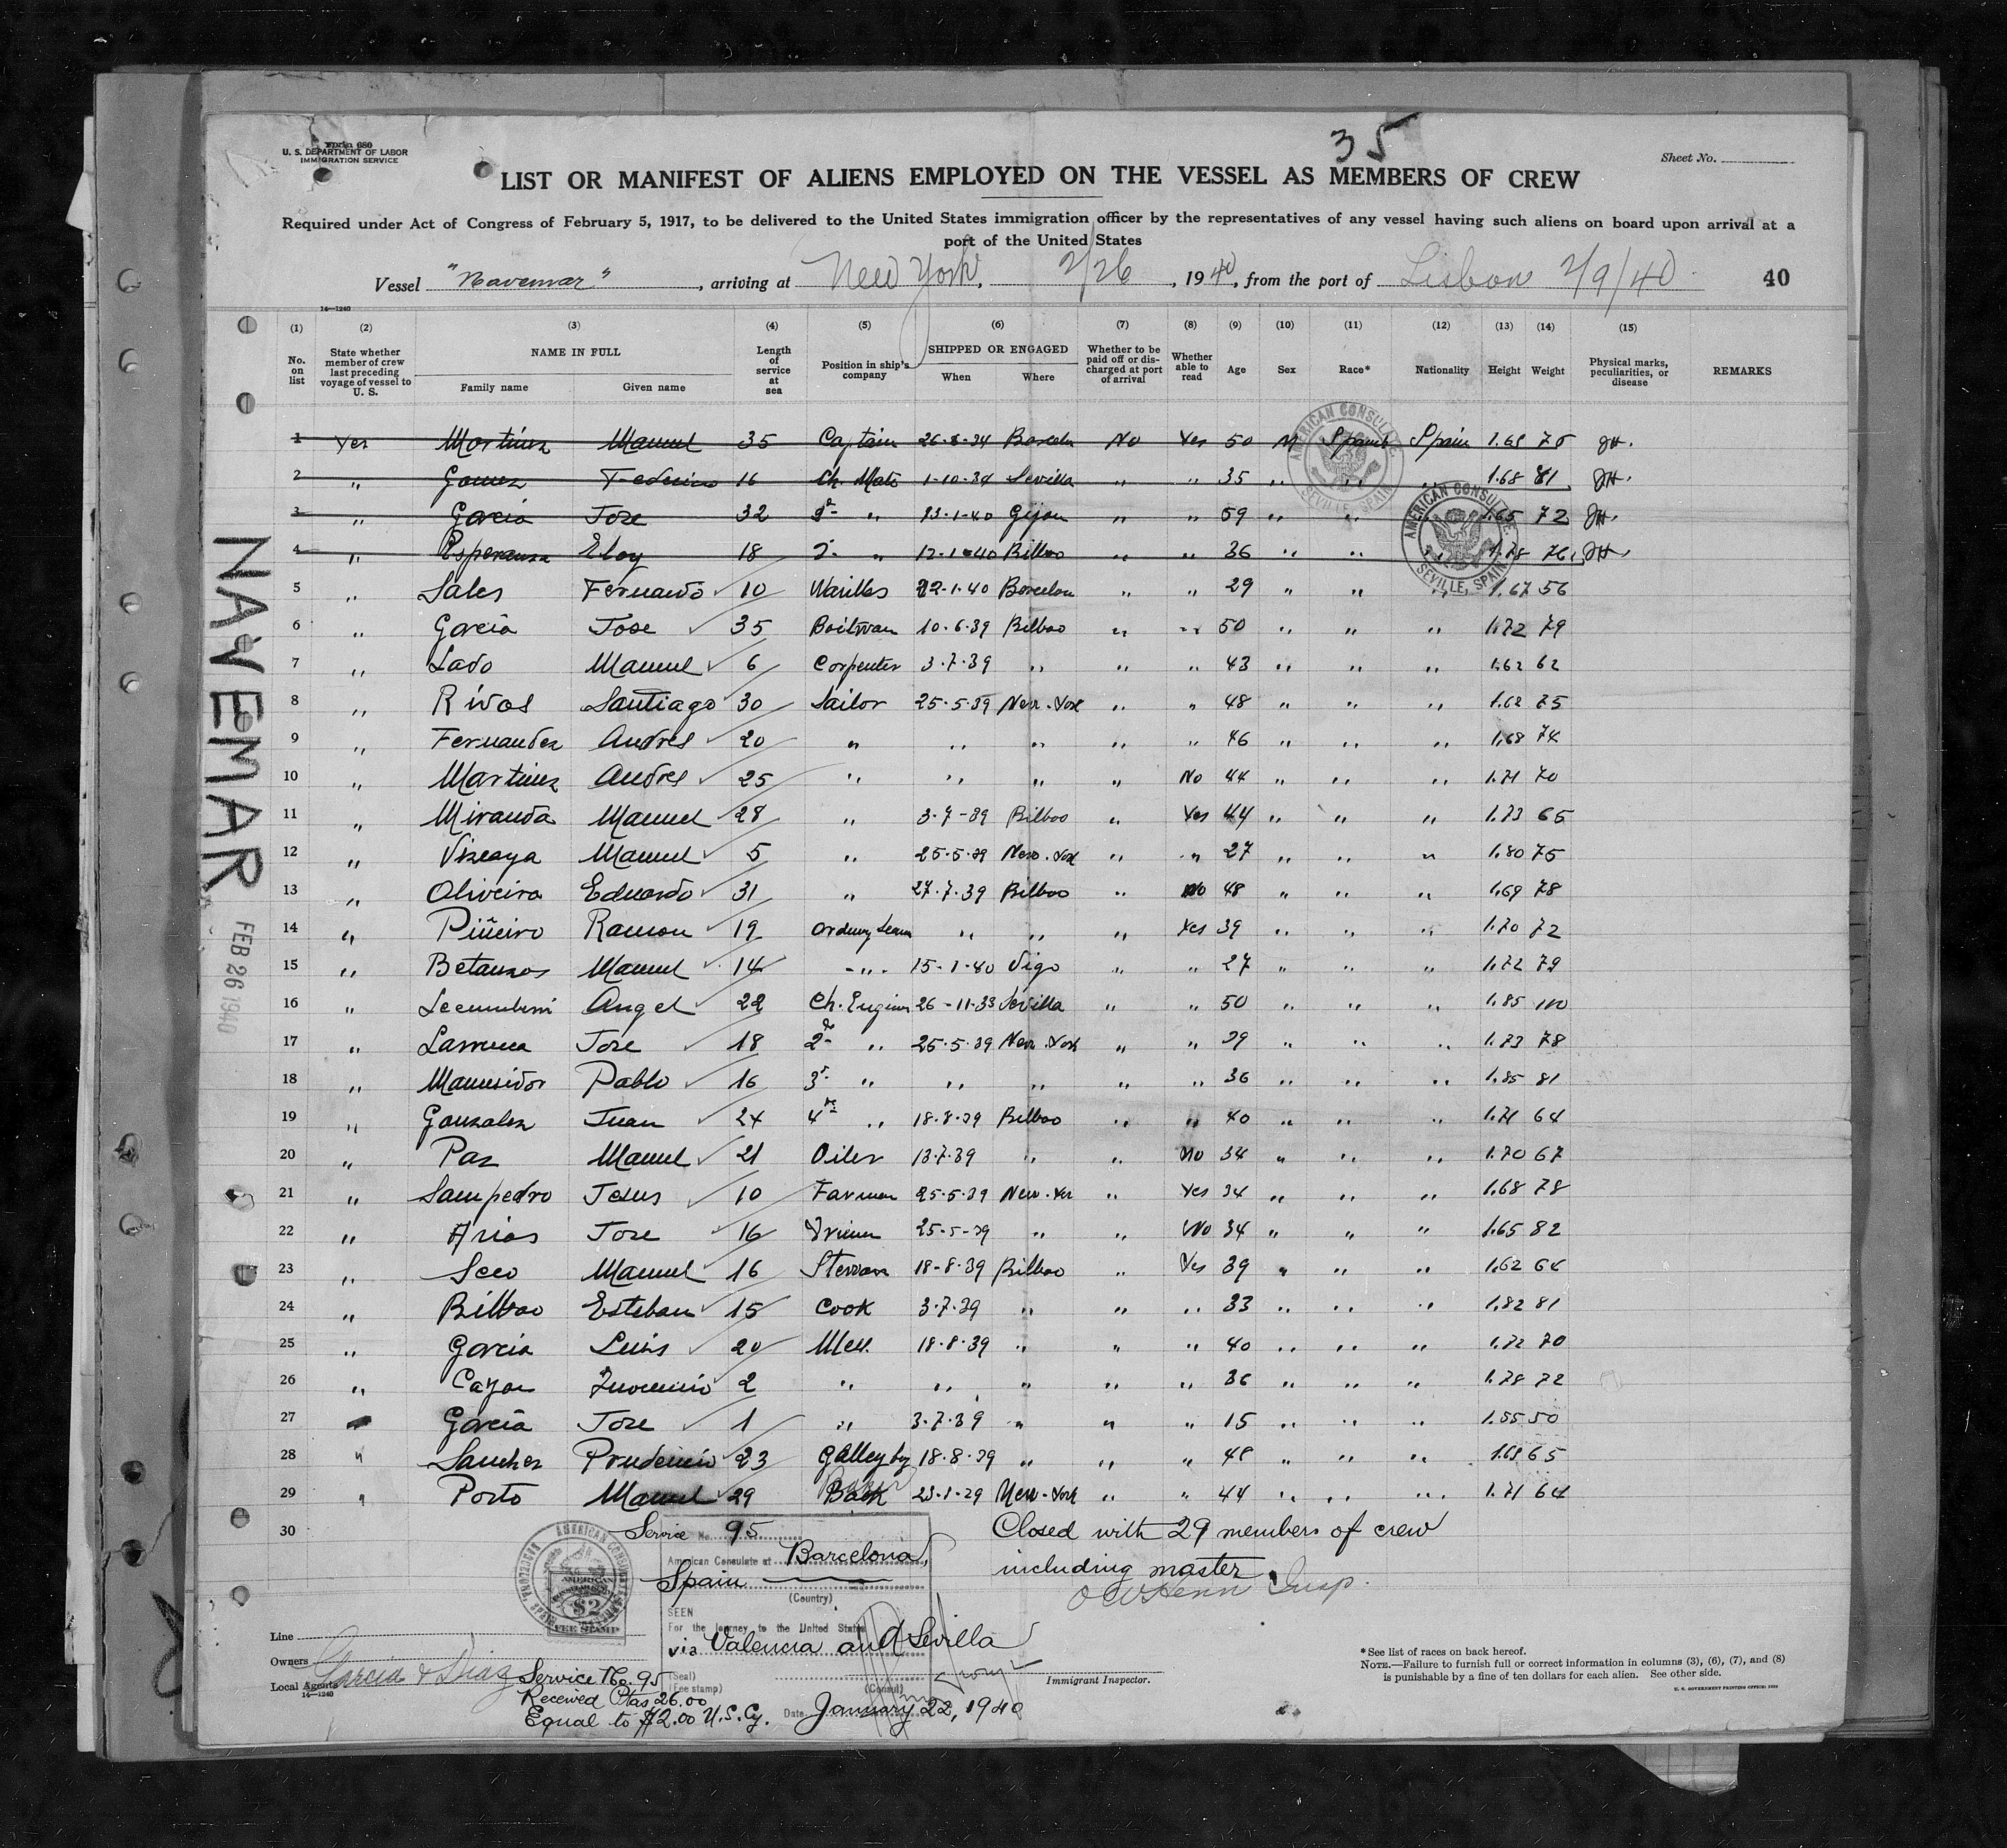 35
Form 680
U. S. DEPARTMENT OF LABOR
IMMIGRATION SERVICE
Sheet No.
LIST OR MANIFEST OF ALIENS EMPLOYED ON THE VESSEL AS MEMBERS OF CREW
Required under Act of Congress of February 5, 1917, to be delivered to the United States immigration officer by the representatives of any vessel having such aliens on board upon arrival at a
port of the United States
Vessel "Navemar", arriving at New York, 2/26, 1940, from the port of Lisbon 2/9/40 40
14—1240
(1) (2) (3) (4) (5) (6) (7) (8) (9) (10) (11) (12) (13) (14) (15)
No. on list
State whether member of crew last preceding voyage of vessel to U. S.
NAME IN FULL
Family name Given name
Length of service at sea
Position in ship's company
SHIPPED OR ENGAGED
When Where
Whether to be paid off or discharged at port of arrival
Whether able to read
Age Sex Race* Nationality Height Weight
Physical marks, peculiarities, or disease
REMARKS
1 Yes Martinez Manuel 35 Captain 26-8-34 Barceln No Yes 50 M Spanish Spain 1.68 JH.
2 " Gomez Federico 16 Ch. Mate 1-10-34 Sevilla " " 35 " " " 1.68 81 JH.
3 " Garcia Jose 32 " 13-1-40 Gijon " " 59 " " 1.65 72 JH.
4 " Esperanza Eloy 18 " 12-1-40 Bilbao " " 36 " " " 1.78 76 JH.
5 " Sales Fernando 10 22-1-40 Barcelon " " 29 " " " 1.67 56
6 " Garcia Jose 35 Boitswan 10-6-39 Bilbao " " 50 " " " 1.72 79
7 " Lado Manuel 6 Carpenter 3-7-39 " " " 43 " " " 1.62 62
8 " Rivas Santiago 30 Sailor 25-5-39 New-York " " 48 " " " 1.62 75
9 " Fernandez Andres 20 " " " " " 46 " " " 1.68 74
10 " Martinez Andres 25 " " " " No 44 " " " 1.71 70
11 " Miranda Manuel 28 " 3-7-39 Bilbao " Yes 44 " " " 1.73 65
12 " Vizcaya Manuel 5 " 25-5-39 New-York " " 27 " " " 1.80 75
13 " Oliveira Eduardo 31 " 27-7-39 Bilbao " No 48 " " " 1.69 78
14 " Piñeiro Ramon 19 " " " Yes 39 " " " 1.70 72
15 " Betanzos Manuel 14 " 15-1-40 Vigo " " 27 " " " 1.72 79
16 " Angel 22 Ch. Enginer 26-11-33 Sevilla " " 50 " " " 1.85 110
17 " Jose 18 2d " 25-5-39 New-York " " 39 " " " 1.73 78
18 " Pablo 16 3r " " " " " 36 " " " 1.85 81
19 " Gonzalez Juan 24 4th " 18-8-39 Bilbao " " 40 " " " 1.71 64
20 " Paz Manuel 21 Oiler 13-7-39 " " No 34 " " " 1.70 67
21 " Sampedro Jesus 10 25-5-39 New-Yor " Yes 34 " " " 1.68 78
22 " Arias Jose 16 25-5-39 " " No 34 " " " 1.65 82
23 " Seco Manuel 16 18-8-39 Bilbao " Yes 39 " " " 1.62 64
24 " Bilbao Esteban 15 Cook 3-7-39 " " " 33 " " " 1.82 81
25 " Garcia Luis 20 18-8-39 " " " 40 " " " 1.72 70
26 " 2 " " " " " 36 " " " 1.78 72
27 Garcia Jose 1 " 3-7-39 " " " 15 " " " 1.55 50
28 " Sanchez Prudencio 23 Galley by 18-8-39 " " " 48 " " " 65
29 " Porto Manuel 29 New-York " " 44 " " " 1.71 64
30
NAVEMAR
FEB 26 1940
AMERICAN CONSULATE. SEVILLE, SPAIN
AMERICAN CONSULATE. SEVILLE, SPAIN
Closed with 29 members of crew
including master.
Insp.
Immigrant Inspector.
Service No. 95
American Consulate at Barcelona,
Spain
(Country)
SEEN
For the journey to the United States
via Valencia and Sevilla
(Seal)
(Fee stamp) (Consul)
Date January 22, 1940
AMERICAN
$2
FEE STAMP
Line
Owners
Local Agents Garcia & Diaz
14—1240
Service No. 95
Received Ptas 26.00
Equal to $2.00 U.S.Cy.
*See list of races on back hereof.
NOTE.—Failure to furnish full or correct information in columns (3), (6), (7), and (8)
is punishable by a fine of ten dollars for each alien. See other side.